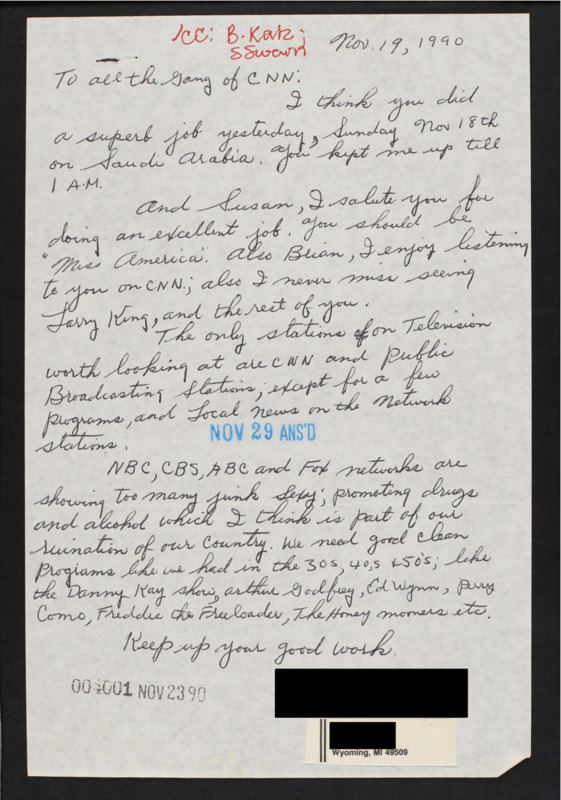 cc: B. Katz
S Swawn
Nov. 19, 1990
To all the Gang of CNN:
I think you did
a superb job yesterday, Sunday Nov 18th
on Saudi Arabia. You kept me up till
1 A.M.
And Susan, I salute you for
doing an excellent job. You should be
"Miss America". Also Brian, I enjoy listening
to you on CNN; also I never miss seeing
Larry King, and the rest of you.
The only stations on Television
worth looking at are CNN and Public
Broadcasting Stations; except for a few
programs, and Local news on the Network
stations.
NOV 29 ANS'D
NBC, CBS, ABC and Fox networks are
showing too many junk Sexy; promoting drugs
and alcohol which I think is part of our
ruination of our Country. We need good clean
Programs like we had in the 30s, 40s &50s; like
the Danny Kay show, Arthur Godfrey, Ed Wynn, Perry
Como, Freddie the Freeloader, The Honey mooners etc.
Keep up your good work.
004001 NOV 23 90
Wyoming, MI 49509